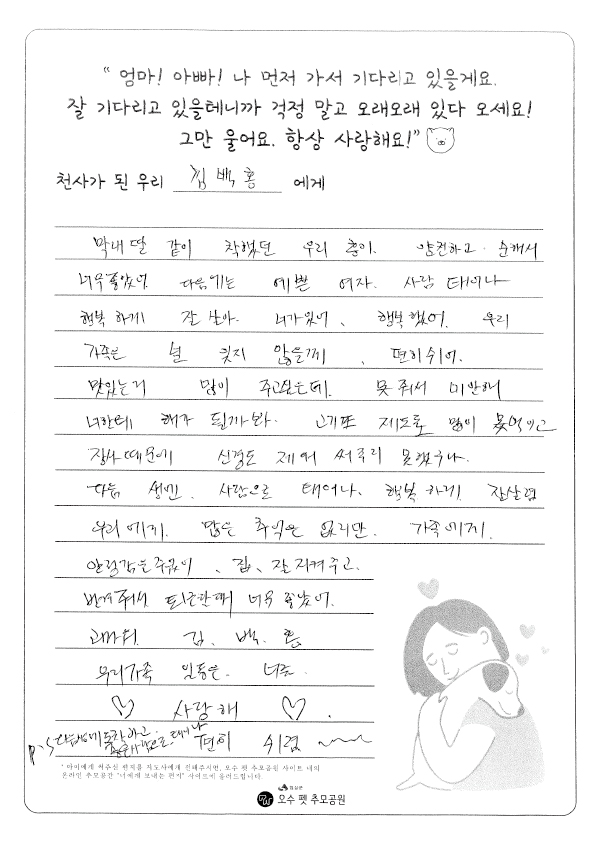 “ 엄마! 아빠! 나 먼저 가서 기다리고 있을게요.
잘 기다리고 있을테니까 걱정 말고 오래오래 있다 오세요!
그만 울어요. 항상 사랑해요!”
천사가 된 우리 김백홍 에게
막내딸 같이 착했던 우리 홍이. 얌전하고 순해서
너무 좋았어. 다음에는 예쁜 여자. 사람 태어나
행복 하게 잘 살아. 너가 있어, 행복했어. 우리
가족은 널 잊지 않을께, 편히 쉬어.
맛있는거 많이 주고싶은데. 못 줘서 미안해
너한테 해가 될까봐. 고기도 제대로 많이 못먹이고
장사 때문에 신경도 제대 써주지 못했구나.
다음 생엔, 사람으로 태어나. 행복 하게. 잘살렴
우리에게. 많은 추억은 없지만. 가족에게.
말썽같은주없이, 집, 잘 지켜주고.
반겨줘서 퇴근할때 너무 좋았어.
고마워. 김. 백. 홍
우리가족 일동은. 너를.
♡ 사랑해 ♡.
P.S 다음생에 편히 쉬렴
* 아이에게 써주신 편지를 지도사에게 전해주시면, 오수 펫 추모공원 사이트 내의
온라인 추모공간 "너에게 보내는 편지" 사이트에 올려드립니다.
임실군
오수 펫 추모공원